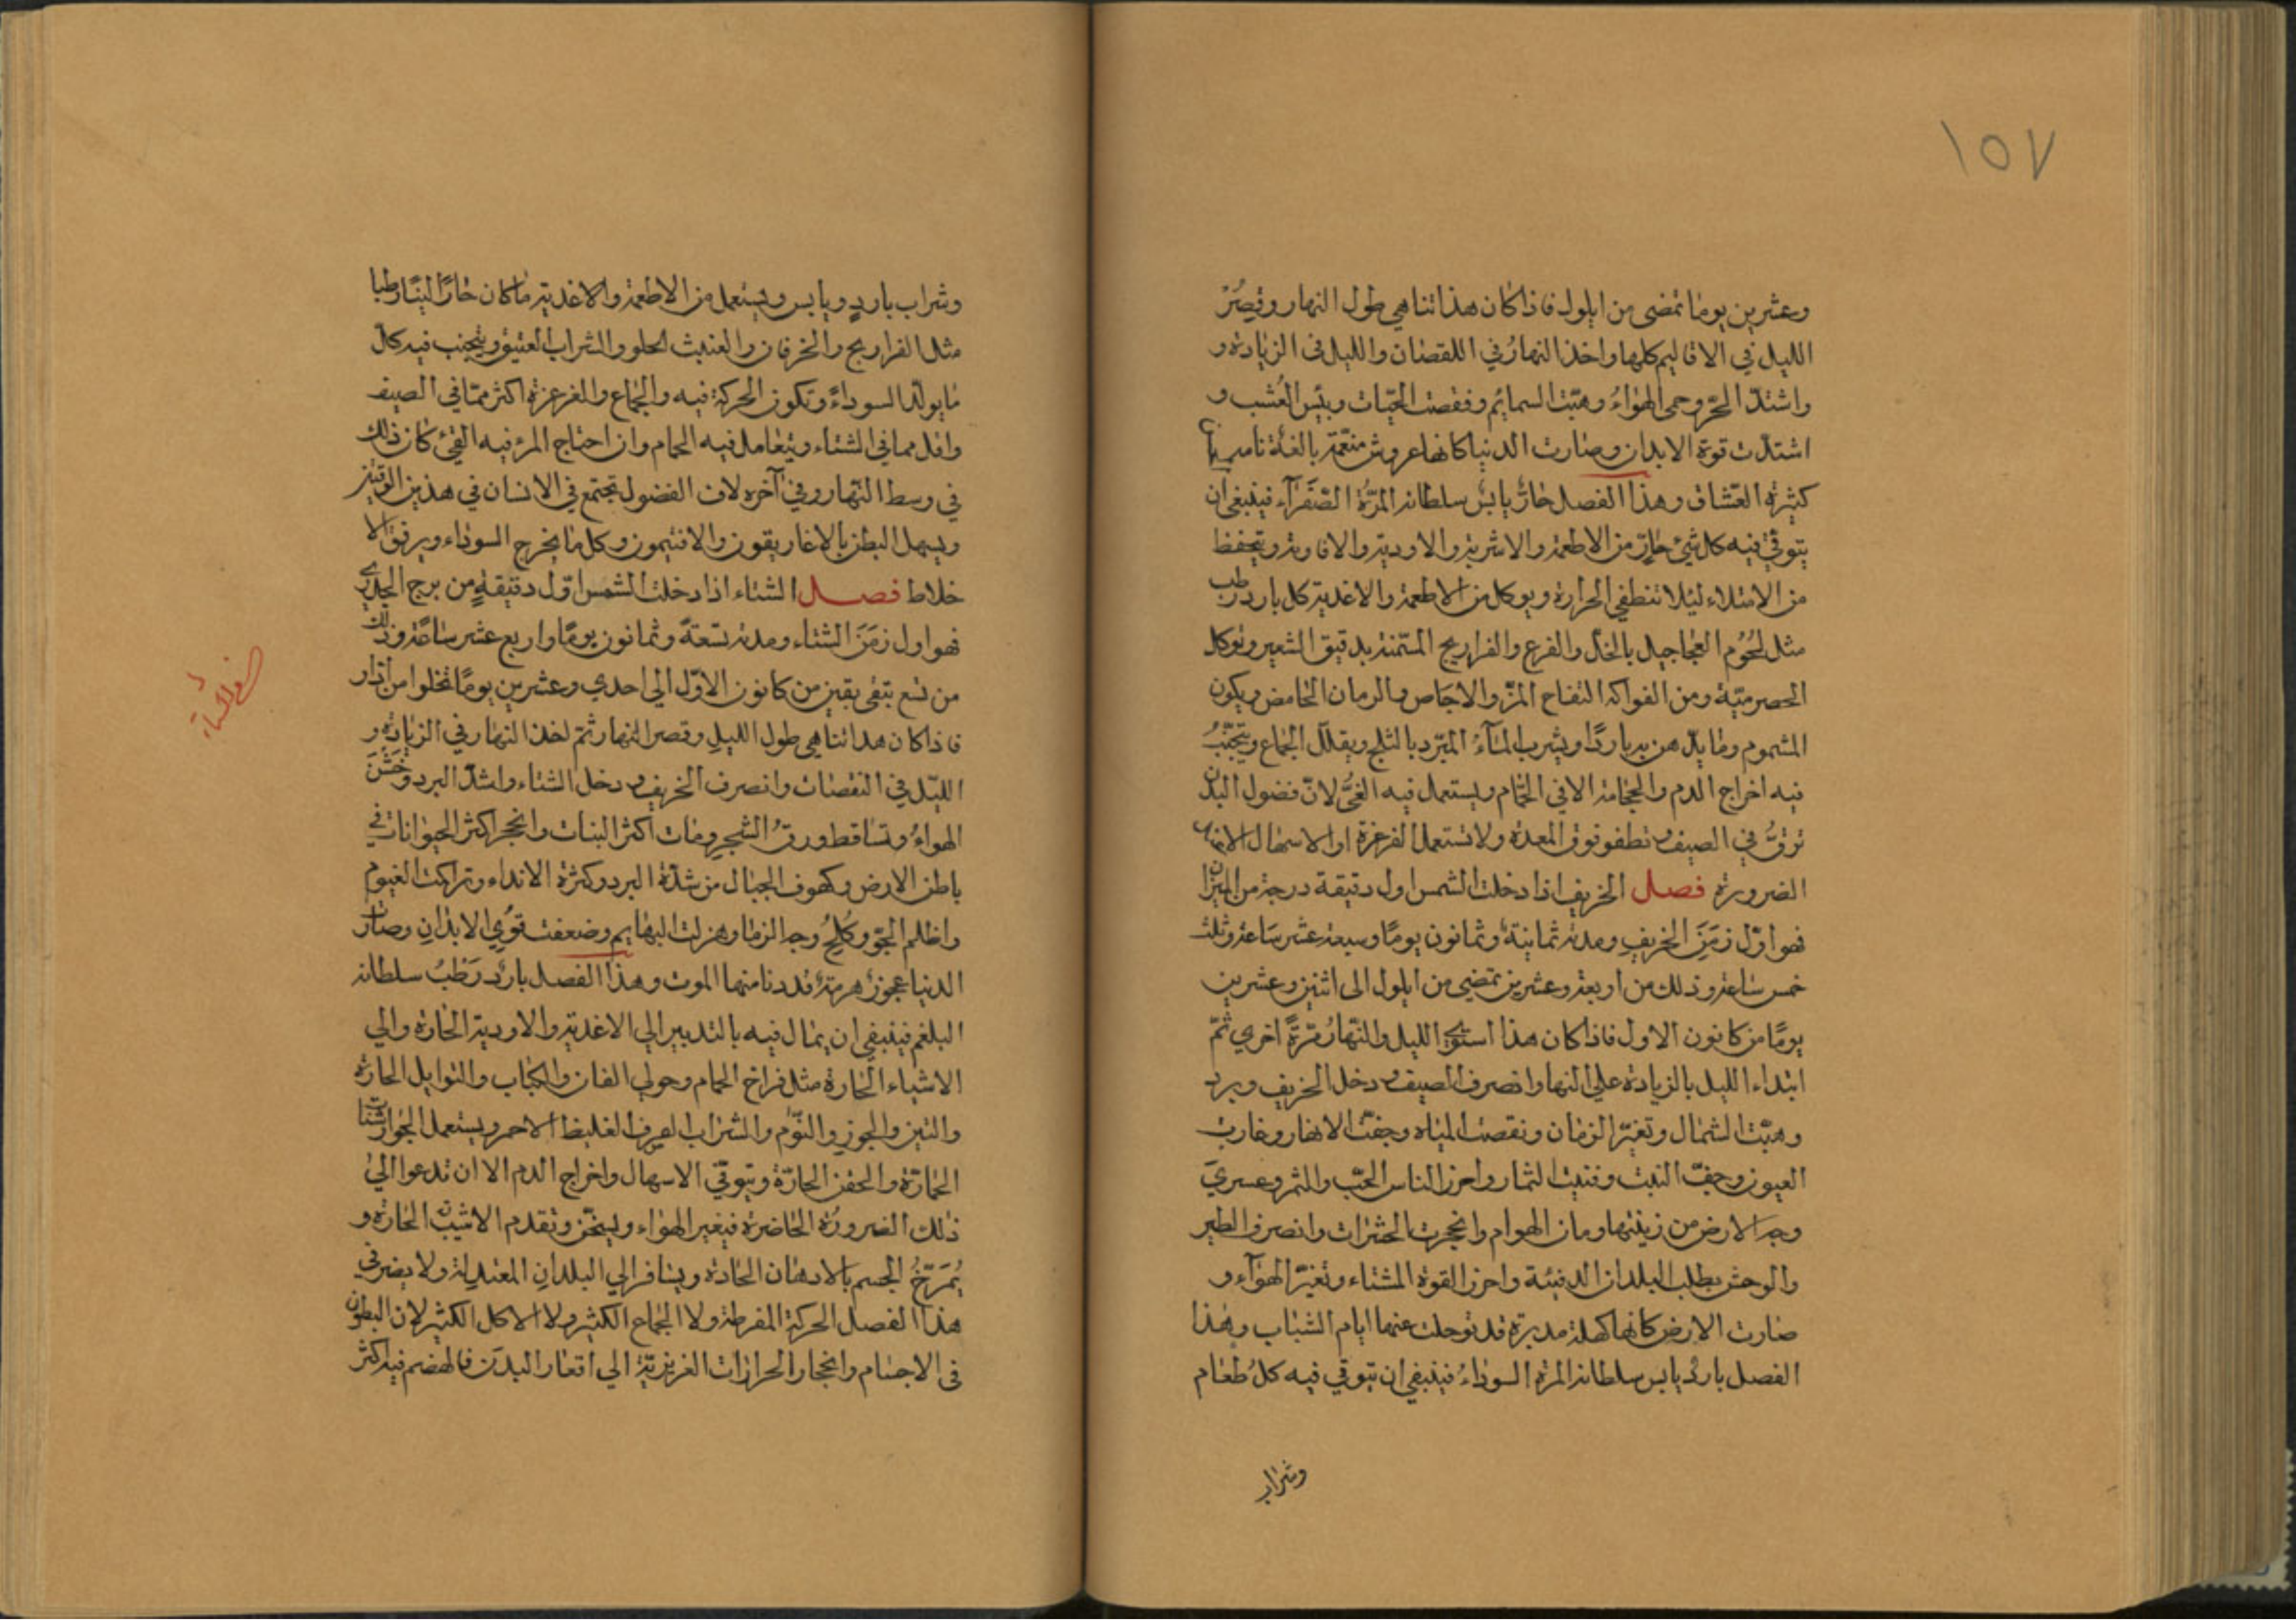 ١٥٧
وعشرين يوما تمضى من ايلول فاذا كان هذا تناهي طول النهار وقصر
الليل في الاقاليم كلها واخذ النهار في اللقصان والليل فى الزيادة و
واشتد الحر وحمى الهواء وهبت السمائم ونقصت الحيات ويبس العشب و
اشتدت قوة الابدان وصارت الدنيا كانها عروش منعمة بالغة تامة
كثيرة العشاق وهذا الفصل حار يابس سلطانه المرة الصفراء فينبغى ان
يتوقى فيه كل شيء حار من الاطعمة والاشربة والادوية والافاويه ويتحفظ
من الامتلاء ليلا تنطفي الحرارة ويوكل من الاطعمة والاغدية كل بارد رطب
مثل لحوم العجاجيل بالخل والقرع والفراريج المسمنة بدقيق الشعير ويوكل
الحصرمية ومن الفواكه التفاح المز والاجاص والرمان الحامض ويكون
المشموم وما يدهن به باردا ويشرب الماء المبرد بالثلج ويقلل الجماع ويتجنب
فيه اخراج الدم والحجامة الا في الحمام ويستعمل فيه القئ لان فضول البدن
ترق في الصيف وتطفو فوق المعدة ولا تستعمل الغرغرة او الاسهال الا عند
الضرورة فصل الخريف اذا دخلت الشمس اول دقيقة درجة من الميزان
فهو اول زمن الخريف ومدته ثمانية وثمانون يوما وسبعة عشر ساعة وثلث
خمس ساعة وذلك من اربعة وعشرين تمضي من ايلول الى اثنين وعشرين
يوما من كانون الاول فاذا كان هذا استوى الليل والنهار مرة اخري ثم
ابتداء الليل بالزيادة علي النهار وانصرف الصيف ودخل الخريف وبرد
وهبت الشمال وتغير الزمان ونقصت المياه وجفت الانهار وغارت
العيون وجف النبت وفنيت الثمار واحرز الناس الحب والثمر وعري
وجه الارض من زينتها ومات الهوام وانجحرت الحشرات وانصرف الطير
والوحش يطلب البلدان الدفيئة واحرز القوة للشتاء وتغير الهواء و
صارت الارض كانها كهلة مدبرة قد تولت عنها ايام الشباب وهذا
الفصل بارد يابس سلطانه المرة السوداء فينبغي ان يتوقي فيه كل طعام
وشراب
وشراب بارد ويابس ويستعمل من الاطعمة والاغدية ما كان حارا لينا رطبا
مثل الفراريج والخرفان والعنب الحلو والشراب العتيق ويتجنب فيه كل
ما يولد السوداء وتكون الحركة فيه والجماع والغرغرة اكثر مما في الصيف
واقل مما في الشتاء ويتعامل فيه الحمام وان احتاج المرء فيه القيء كان ذلك
في وسط النهار وفي آخره لان الفضول تجتمع في الانسان في هذين الوقتين
ويسهل البطن بالاغاريقون والافتيمون وكل ما يخرج السوداء ويرفق الا
خلاط فصل الشتاء اذا دخلت الشمس اول دقيقة من برج الجدي
فهو اول زمن الشتاء ومدته تسعة وثمانون يوما واربع عشر ساعة وذلك
من تسع تبقى بقين من كانون الاول الي احدي وعشرين يوما تخلوا من آذار
فاذا كان هدا تناهي طول الليل وقصر النهار ثم اخذ النهار في الزيادة و
الليل في النقصان وانصرف الخريف ودخل الشتاء واشتد البرد وخشن
الهواء وتساقط ورق الشجر ومات اكثر النبات وانجحر اكثر الحيوانات في
باطن الارض وكهوف الجبال من شدة البرد وكثرة الانداء وتراكمت الغيوم
واظلم الجو وكلح وجه الزمان وهزلت البهايم وضعفت قوي الابدان وصارت
الدنيا عجوز هرمة قد دنا منها الموت وهذا الفصل بارد رطب سلطانه
البلغم فينبغي ان يمال فيه بالتدبير الي الاغدية والادوية الحارة والي
الاشياء الحارة مثل فراخ الحمام وحولي الضان والكباب والتوابل الحارة
والتين والجوز والثوم والشراب الصرف الغليظ الاحمر ويستعمل الجوارشنات
الحارة والحقن الحارة ويتوقي الاسهال واخراج الدم الا ان تدعوا الي
ذلك الضرورة الحاضرة فيغير الهواء ويسخن وتقدم الاشياء الحارة و
يمرخ الجسم بالادهان الحارة ويسافر الي البلدان المعتدلة ولا يضر في
هذا الفصل الحركة المفرطة ولا الجماع الكثير ولا الاكل الكثير لان البطون
فى الاجسام وانجحار الحرارات الغريزية الي اقعار البدن فالهضم فيه اكثر